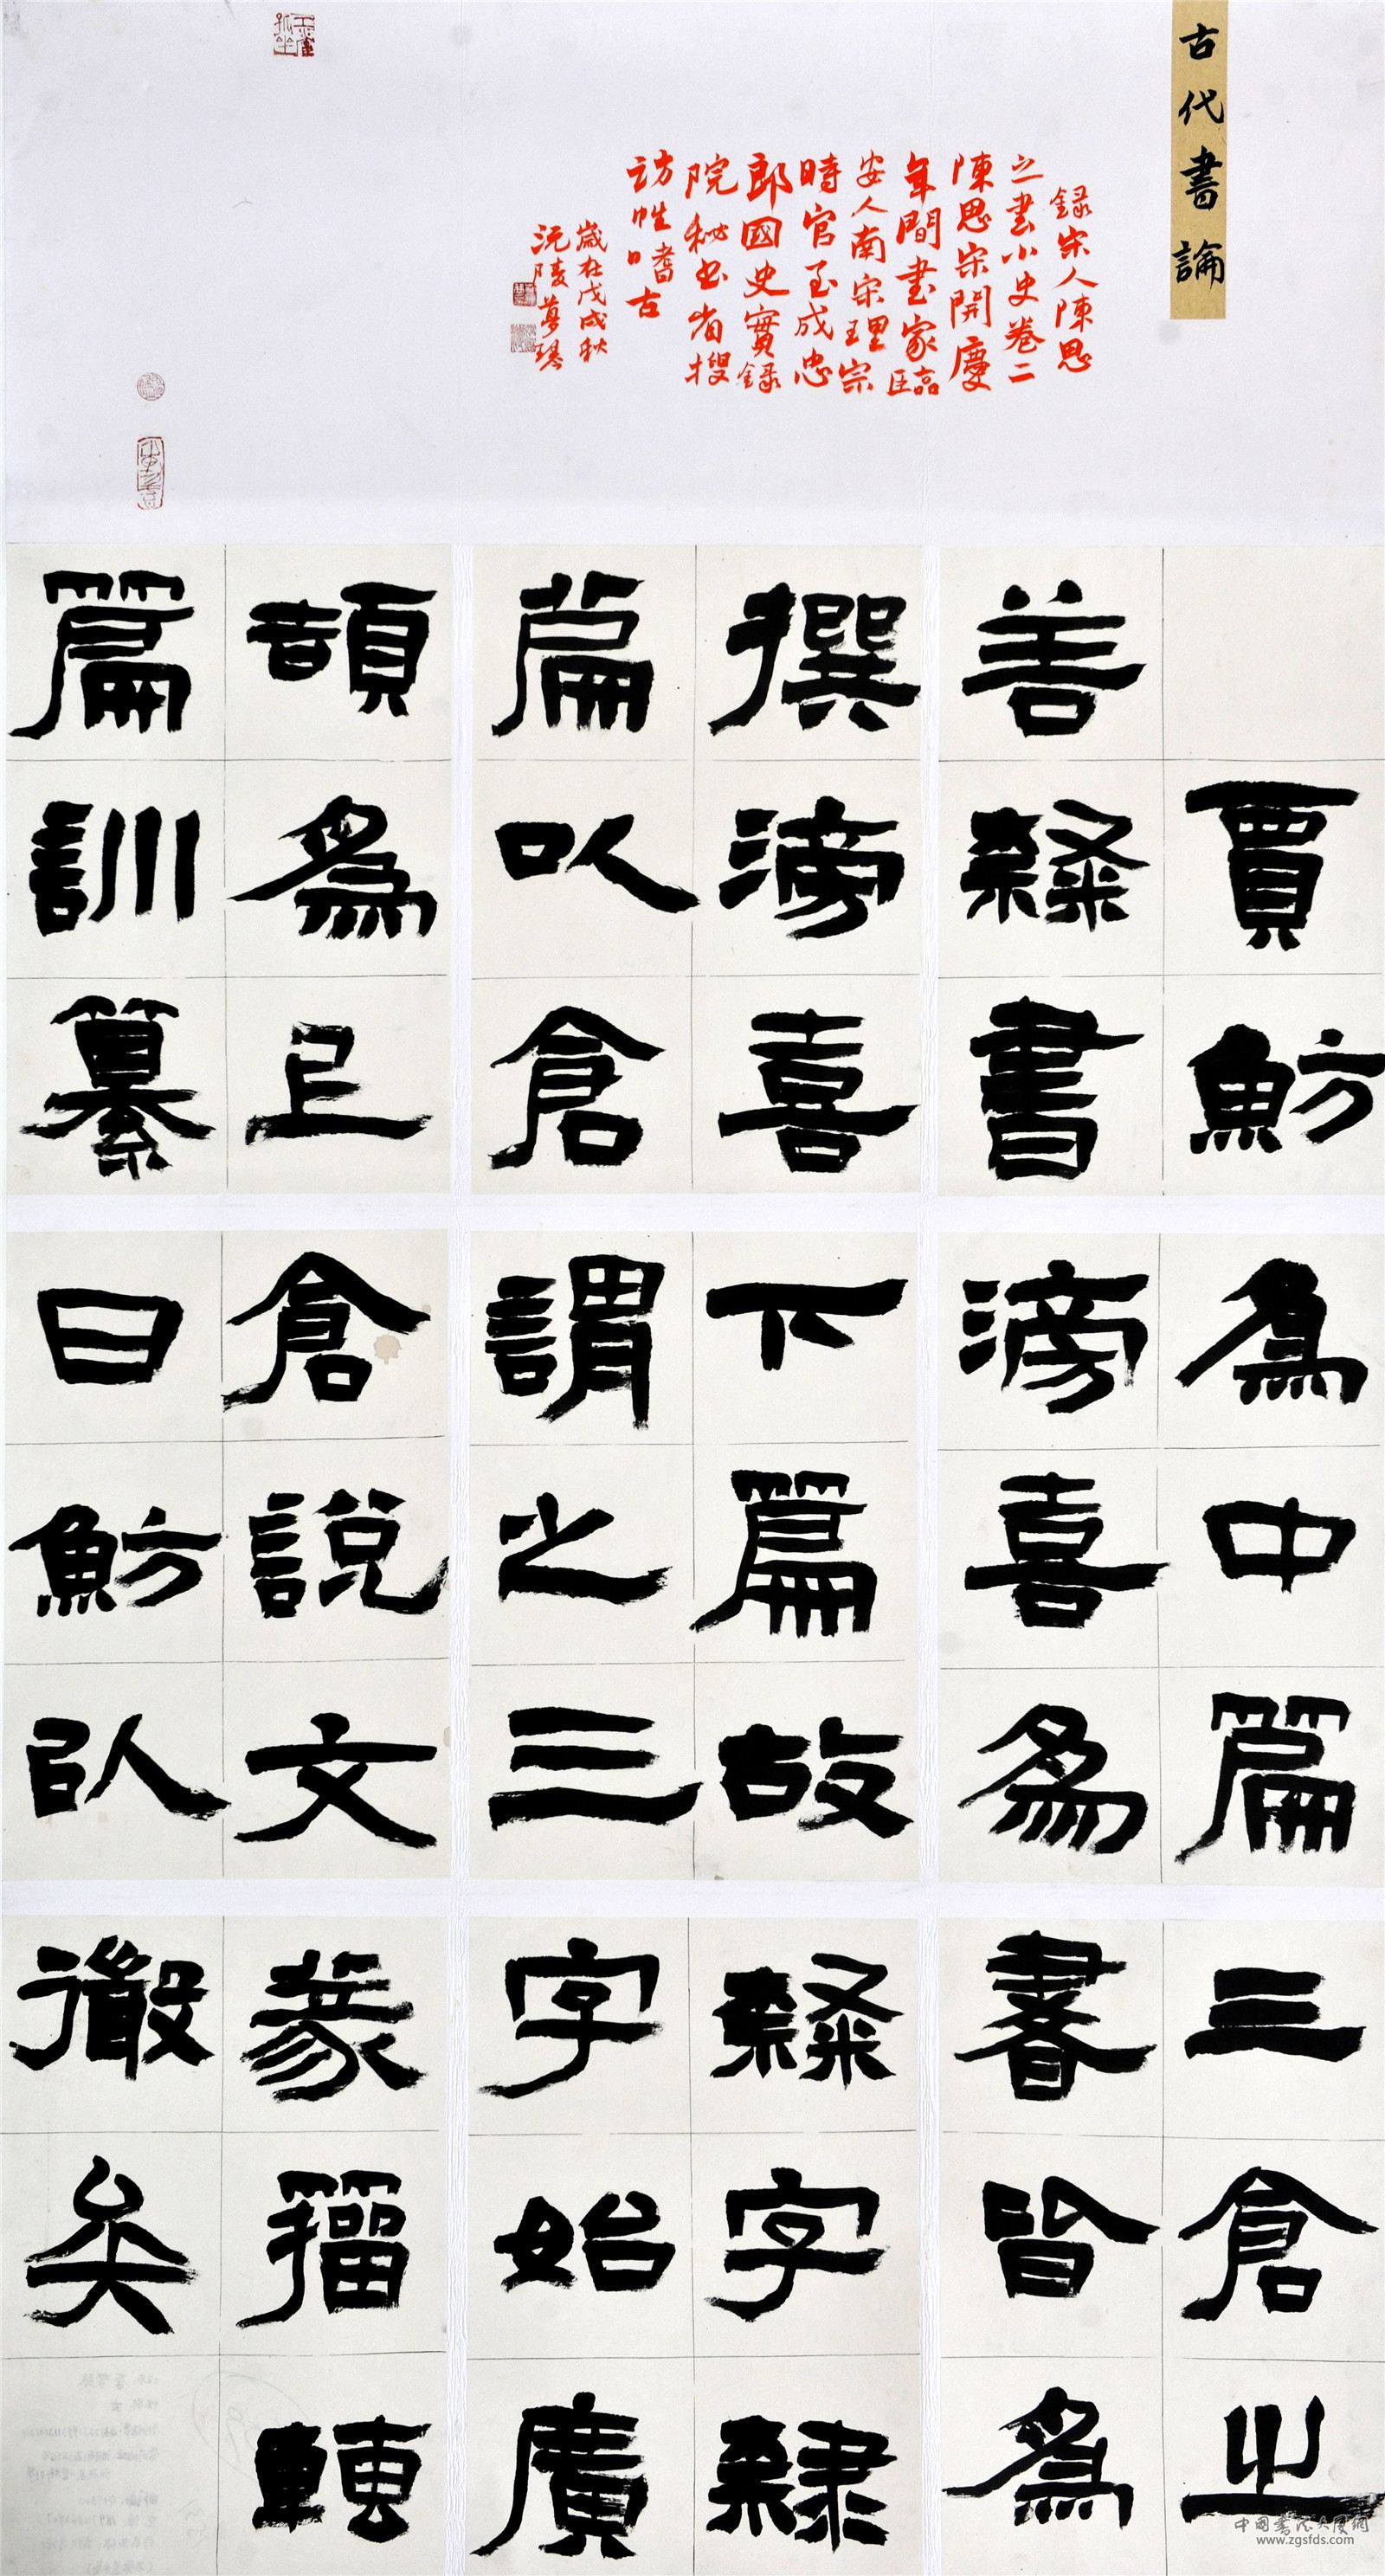 古代書論
錄宋人陳思
之書小史卷二
陳思宋開慶
年間書家臨
安人南宋理宗
時官至成忠
郎國史實錄
院秘書省搜
訪惟日嗜古
歲在戊戌秋
沅陵夢琴
賈魴
善隸書
撰滂喜
篇以倉
頡爲上
篇訓纂
爲中篇
滂喜爲
下篇故
謂之三
倉說文
曰魴以
三倉之
書皆爲
隸字隸
字始廣
篆籀轉
微矣
中國書法大厦網
www.zgsfds.com